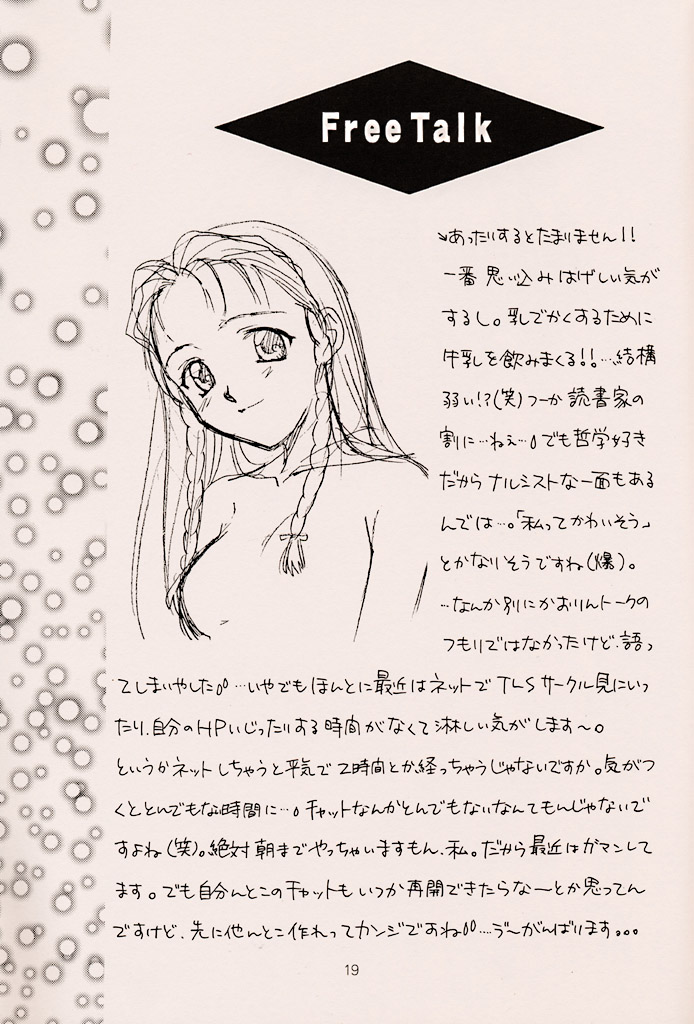 Free Talk
↘あったりするとたまりません!!
一番思い込みはげしい気が
するし。乳でかくするために
牛乳を飲みまくる!!…結構
弱い!?(笑)つーか読書家の
割に…ねぇ…。でも哲学好き
だからナルシストな一面もある
んでは…。「私ってかわいそう」
とかなりそうですね(爆)。
…なんか別にかおりんトークの
つもりではなかったけど、語っ
てしまいやした。。…いやでもほんとに最近はネットでTLSサークル見にいっ
たり、自分のHPいじったりする時間がなくて淋しい気がします〜。
というかネットしちゃうと平気で2時間とか経っちゃうじゃないですか。気がつ
くととんでもな時間に…。チャットなんかとんでもないなんてもんじゃないで
すよね(笑)。絶対朝までやっちゃいますもん、私。だから最近はガマンして
ます。でも自分んとこのチャットもいつか再開できたらな〜とか思ってん
ですけど、先に他んとこ作れってカンジですね。。…う〜がんばります。。。
19